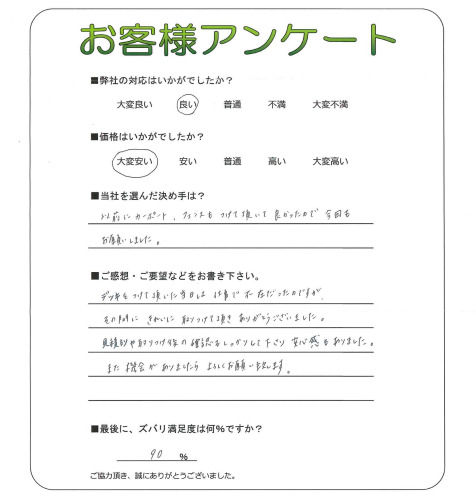 お客様アンケート
■弊社の対応はいかがでしたか？
大変良い 良い 普通 不満 大変不満
■価格はいかがでしたか？
大変安い 安い 普通 高い 大変高い
■当社を選んだ決め手は？
以前にカーポート、フェンスもつけて頂いて良かったので今回も
お願いしました。
■ご感想・ご要望などをお書き下さい。
デッキをつけて頂いた当日は仕事で不在だったのですが、
その間にきれいに取りつけて頂きありがとうございました。
見積りや取りつけ後の確認もしっかりして下さり安心感もありました。
また機会がありましたらよろしくお願い致します。
■最後に、ズバリ満足度は何％ですか？
90 ％
ご協力頂き、誠にありがとうございました。